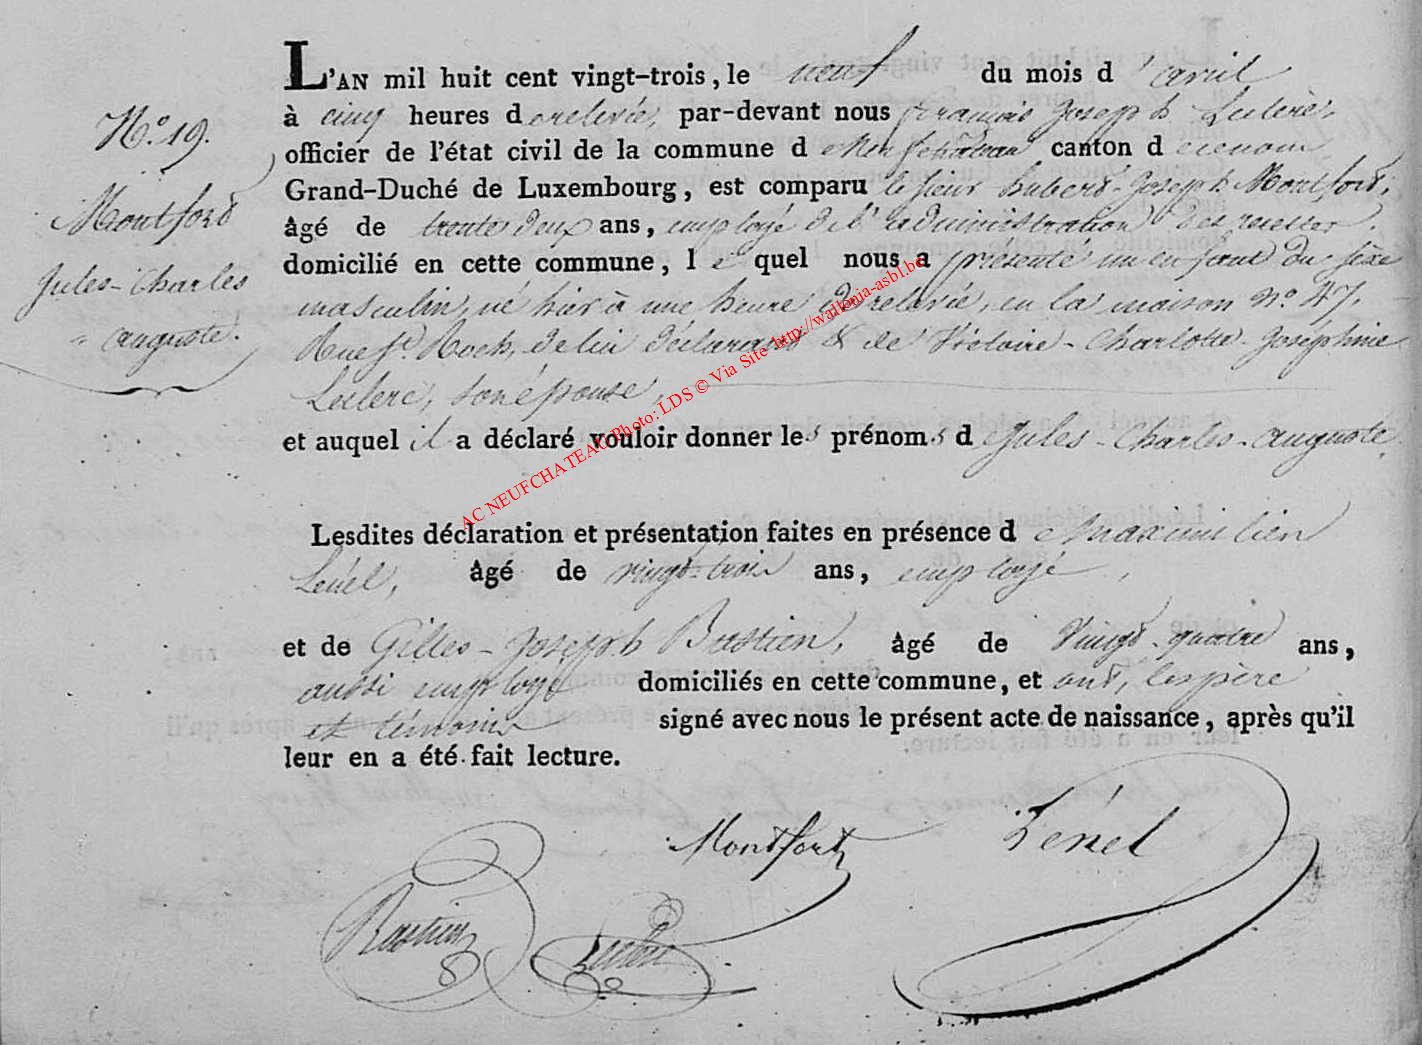 L'AN mil huit cent vingt-trois, le neuf du mois d'avril
N.° 19.
à cinq heures de relevée, par-devant nous françois Joseph Leclerc,
officier de l'état civil de la commune de Neufchâteau canton de ce nom
Grand-Duché de Luxembourg, est comparu le sieur hubert-Joseph Montfort,
Montfort
âgé de trente deux ans, employé de l'administration des recettes.
domicilié en cette commune, lequel nous a présenté un enfant du sexe
Jules-Charles
masculin, né hier à une heure de relevée, en la maison N° 47,
auguste.
Rue St. Roch, de lui déclarant & de Victoire-Charlotte-Joséphine
Leclerc, son épouse,
et auquel il a déclaré vouloir donner les prénoms de Jules-Charles-auguste.
AC NEUFCHATEAU Photo: LDS © Via Site http://wallonia-asbl.be
Lesdites déclaration et présentation faites en présence de Maximilien
Lénel, âgé de vingt-trois ans, employé,
et de Gilles-Joseph Bastien, âgé de Vingt-quatre ans,
aussi employé domiciliés en cette commune, et ont, les père
et témoins signé avec nous le présent acte de naissance, après qu'il
leur en a été fait lecture.
Montfort
Lénel
Bastien
Leclerc